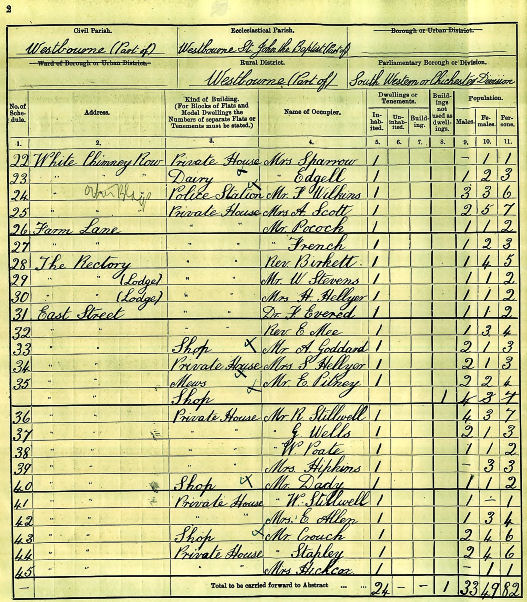 2
Civil Parish. Ecclesiastical Parish. Borough or Urban District.
Westbourne (Part of) Westbourne St. John the Baptist (Part of)
Ward of Borough or Urban District. Rural District. Parliamentary Borough or Division.
Westbourne (Part of) South Western or Chichester Division
No. of Schedule. Address. Kind of Building. (For Blocks of Flats and Model Dwellings the Numbers of separate Flats or Tenements must be stated.) Name of Occupier. Dwellings or Tenements. Inhabited. Uninhabited. Building. Buildings not used as dwellings. Population. Males. Females. Persons.
1. 2. 3. 4. 5. 6. 7. 8. 9. 10. 11.
22 White Chimney Row Private House Mrs Sparrow 1 - 1 1
23 " " Dairy " Edgell 1 1 2 3
24 " " Police Station Mr. F Wilkins 1 3 3 6
25 " " Private House Mrs A Scott 1 2 5 7
26 Farm Lane " " Mr. Pocock 1 1 1 2
27 " " " " " French 1 1 2 3
28 The Rectory " " Rev. Birkett 1 1 4 5
29 " " (Lodge) " " Mr. W Stevens 1 1 1 2
30 " " (Lodge) " " Mrs H. Hellyer 1 1 1 2
31 East Street " " Dr. F Everod 1 1 1 2
32 " " " " Rev E Mee 1 1 3 4
33 " " Shop Mr A Goddard 1 2 1 3
34 " " Private House Mrs S Hellyer 1 2 1 3
35 " " Mews Mr. E. Pitney 1 2 2 4
Shop 1 4 3 7
36 " " Private House Mr R. Stillwell 1 4 3 7
37 " " " " " G Wells 1 2 1 3
38 " " " " " W Poate 1 1 1 2
39 " " " " Mrs. Hipkins 1 - 3 3
40 " " Shop Mr. Dady 1 1 1 2
41 " " Private House " W. Stillwell 1 1 - 1
42 " " " " Mrs. E. Allen 1 1 3 4
43 " " Shop Mr Crouch 1 2 4 6
44 " " Private House " Stapley 1 2 4 6
45 " " " " Mrs Hickox 1 - 1 1
Total to be carried forward to Abstract ... 24 - - 1 33 49 82